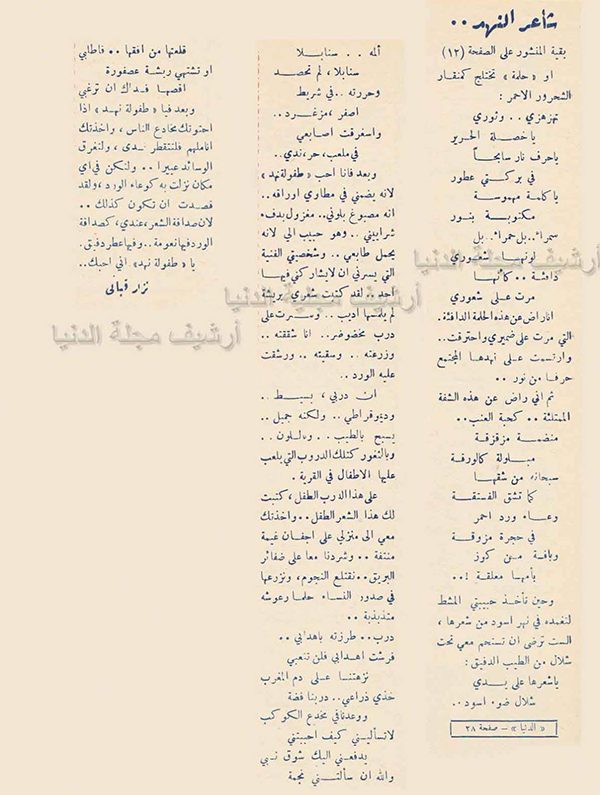 شاعر النهد ..
بقية المنشور على الصفحة (١٢)
او « حلمة » تختلج كمنقار
الشحرور الاحمر :
تهزهزي .. وثوري
يا خصلة الحرير
يا حرف نار سابحاً
في بركتي عطور
يا كلمة مهموسة
مكتوبة بنور
سمراء .. بل حمراء . بل
لونها شعوري
دافئة .. كأنها
مرت على شعوري
انا راض عن هذه الحلمة الدافئة .
التي مرت على ضميري واحترقت ..
وارتسمت على نهدها المجتمع
حرفا من نور ..
ثم اني راض عن هذه الشفة
الممتلئة .. كحبة العنب ..
منضمة مزقزقة
مبلولة كالورقة
سبحانه من شقها
كما تشق الفستقة
وعاء ورد احمر
في حجرة مزوقة
وباقة من كرز
بأمها معلقة !..
وحين تأخذ حبيبتي المشط
لتغمده في نهر اسود من شعرها ،
الست ترضى ان تستحم معي تحت
شلال من الطيب الدفيق :
يا شعرها على يدي
شلال ضوء اسود ..
« الدنيا » – صفحة ٢٨
ألمه .. سنابلا
سنابلا ، لم تحصد
وحررته .. في شريط
اصفر ، مزغرد ..
واستغرقت اصابعي
في ملعب ، حر ، ندي ..
وبعد فانا احب « طفولة نهد »
لانه يضمني في مطاوي اوراقه ..
انه مصبوغ بلوني .. مغزول بدفء
شراييني .. وهو حبيب الي لانه
يحمل طابعي .. وشخصيتي الفنية
التي يسرني ان لا يشاركني فيها
احد .. لقد كتبت شعري بريشة
لم يلمسها اديب .. وسرت على
درب مخضوضر .. انا شققته ..
وزرعته .. وسقيته .. ورشقت
عليه الورد ..
ان دربي ، بسيط ..
وديموقراطي .. ولكنه جميل ..
يسبح بالطيب .. وباللون ..
وبالثغور كتلك الدروب التي يلعب
عليها الاطفال في القرية .
على هذا الدرب الطفل ، كتبت
لك هذا الشعر الطفل .. واخذتك
معي الى منزلي على اجفان غيمة
منتفة .. وشردنا معا على ضفائر
البريق .. نقتلع النجوم ، ونزرعها
في صدور النساء حلما رعوشه
متذبذبة ..
درب .. طرزته باهدابي ..
فرشت اهدابي فلن تتعبي
نزهتنا على دم المغرب
خذي ذراعي .. دربنا فضة
ووعدنا في مخدع الكوكب
لا تسأليني كيف احببتني
يدفعني اليك شوق نبي
والله ان سألتني نجمة
قلعتها من افقها .. فاطلبي
او تشتهي ريشة عصفورة
اقصها فداك ان ترغبي
وبعد فيا « طفولة نهد » اذا
احتوتك مخادع الناس ، واخذتك
اناملهم فلتتقطر ندى ، ولتغرق
الوسائد عبيرا .. ولتكن في اي
مكان نزلت به كوعاء الورد ، ولقد
قصدت ان تكون كذلك ..
لان صداقة الشعر ، عندي ، كصداقة
الورد فيها نعومة .. وفيها عطر دفيق .
يا « طفولة نهد » اني احبك ..
نزار قباني
أرشيف مجلة الدنيا
أرشيف مجلة الدنيا
أرشيف مجلة الدنيا